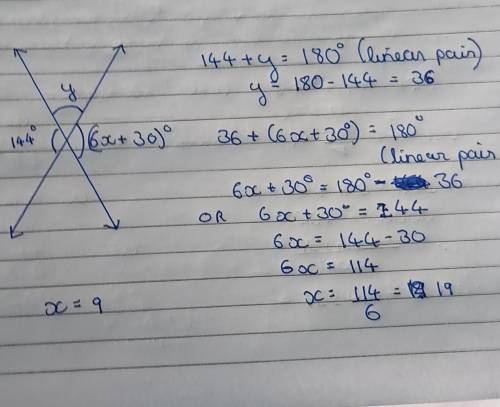 144 + y = 180° (linear pair)
y = 180 - 144 = 36
y
144° (6x + 30)°
36 + (6x + 30°) = 180°
(linear pair
6x + 30° = 180° - 36
OR 6x + 30° = 144
6x = 144 - 30
6x = 114
x = 114/6 = 19
x = 9